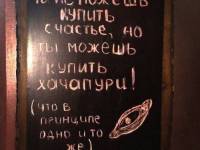 ты не можешь
купить
счастье, но
ты можешь
купить
хачапури!
(что в
принципе
одно и то
же)